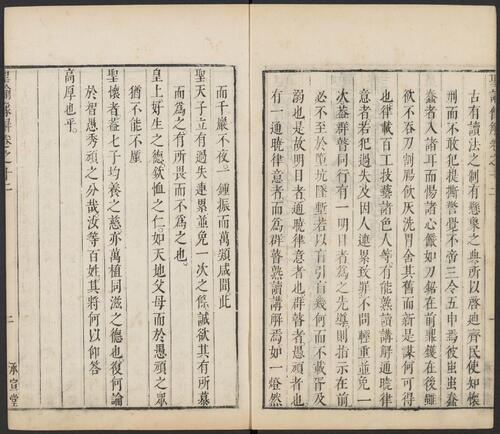 古有讀法之制有懸象之典所以啓迪齊民使知懷
刑而不敢犯提撕警覺不啻三令五申焉彼蚩蚩蠢
蠢者入諸耳而惕諸心儼如刀鋸在前鼎鑊在後雖
欲不吞刀刮腸飲灰洗胃舍其舊而新是謀何可得
也律載百工技藝諸色人等有能熟讀講解通曉律
意者若犯過失及因人連累致罪不問輕重並免一
次蓋群瞽同行有一明目者為之先導則指示在前
必不至於墮坑墜塹若以盲引盲幾何而不載胥及
溺也是故明目者通曉律意者也群瞽者愚頑者也
有一通曉律意者而為群瞽熟讀講解焉如一燈然
而千巖不夜一鐘振而萬頑咸聞此
聖天子立有過失連累並免一次之條誠欲其有所慕
而為之有所畏而不為之也。
皇上好生之德欽恤之仁。如天地父母而於愚頑之眾
猶不能不厪
聖懷者蓋七子均養之慈亦萬植同滋之德也復何論
於智愚秀頑之分哉汝等百姓其將何以仰答
高厚也乎。
聖諭像解卷之十二
二
承宣堂